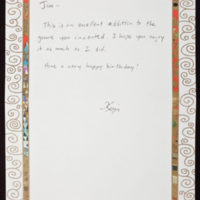 Jim —
This is an excellent addition to the
game you invented. I hope you enjoy
it as much as I did.
Have a very happy birthday!